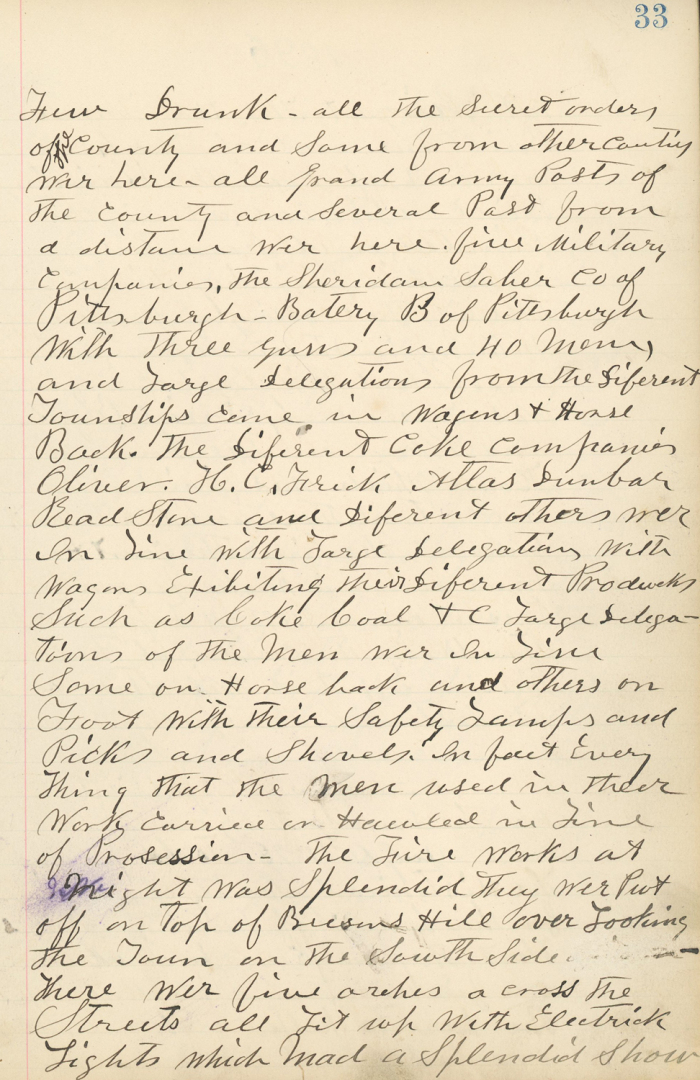 33
Few Drunk - all the Secret orders
of the County and Some from other Counties
wer here - all Grand Army Posts of
the County and Several Post from
a distance wer here. five Military
Companies, the Sheridan Saber Co of
Pittsburgh - Batery B of Pittsburgh
With three guns and 40 Men,
and Large Delegations from the Diferent
Townships came in Wagons & Horse
Back. The Diferent Coke Companies
Oliver. H. C. Frick Atlas Dunbar
Read Stone and Diferent others wer
In Line With Large Delegations With
Wagons Exibiting their Diferent Products
Such as Coke Coal & C Large Delega-
tions of the Men wer In Line
Some on Horse back and others on
Froot With their Safety Lamps and
Picks and Shovels. In fact Every
thing that the Men used in their
Work Carried or Hawled in Line
of Prosession - The Fire Works at
Night Was Splendid They Wer Put
off on top of Beesons Hill over Looking
the Town on the South Side -
there Wer five arches a cross the
Streets all Lit up With Electrick
Lights which Mad a Splendid Show